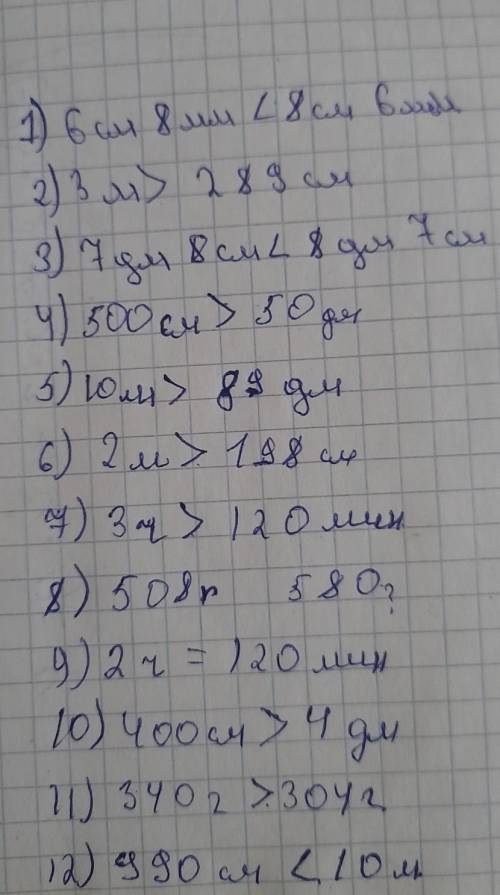 1) 6 см 8 мм < 8 см 6 мм
2) 3 м > 289 см
3) 7 дм 8 см < 8 дм 7 см
4) 500 см > 50 дм
5) 10 м > 89 дм
6) 2 м > 198 см
7) 3 ч > 120 мин
8) 508 г 580 г
9) 2 ч = 120 мин
10) 400 см > 4 дм
11) 340 г > 304 г
12) 990 см < 10 м